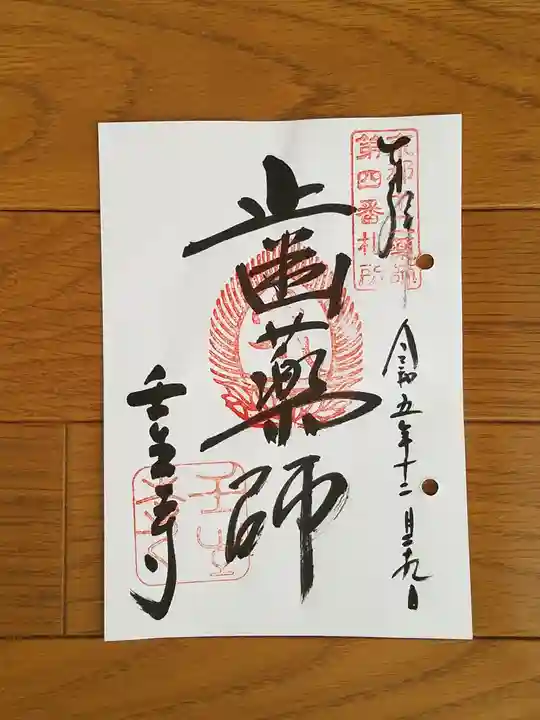 奉拝
京都十二薬師
第四番札所
令和五年十二月二十九日
歯薬師
壬生寺
壬生寺